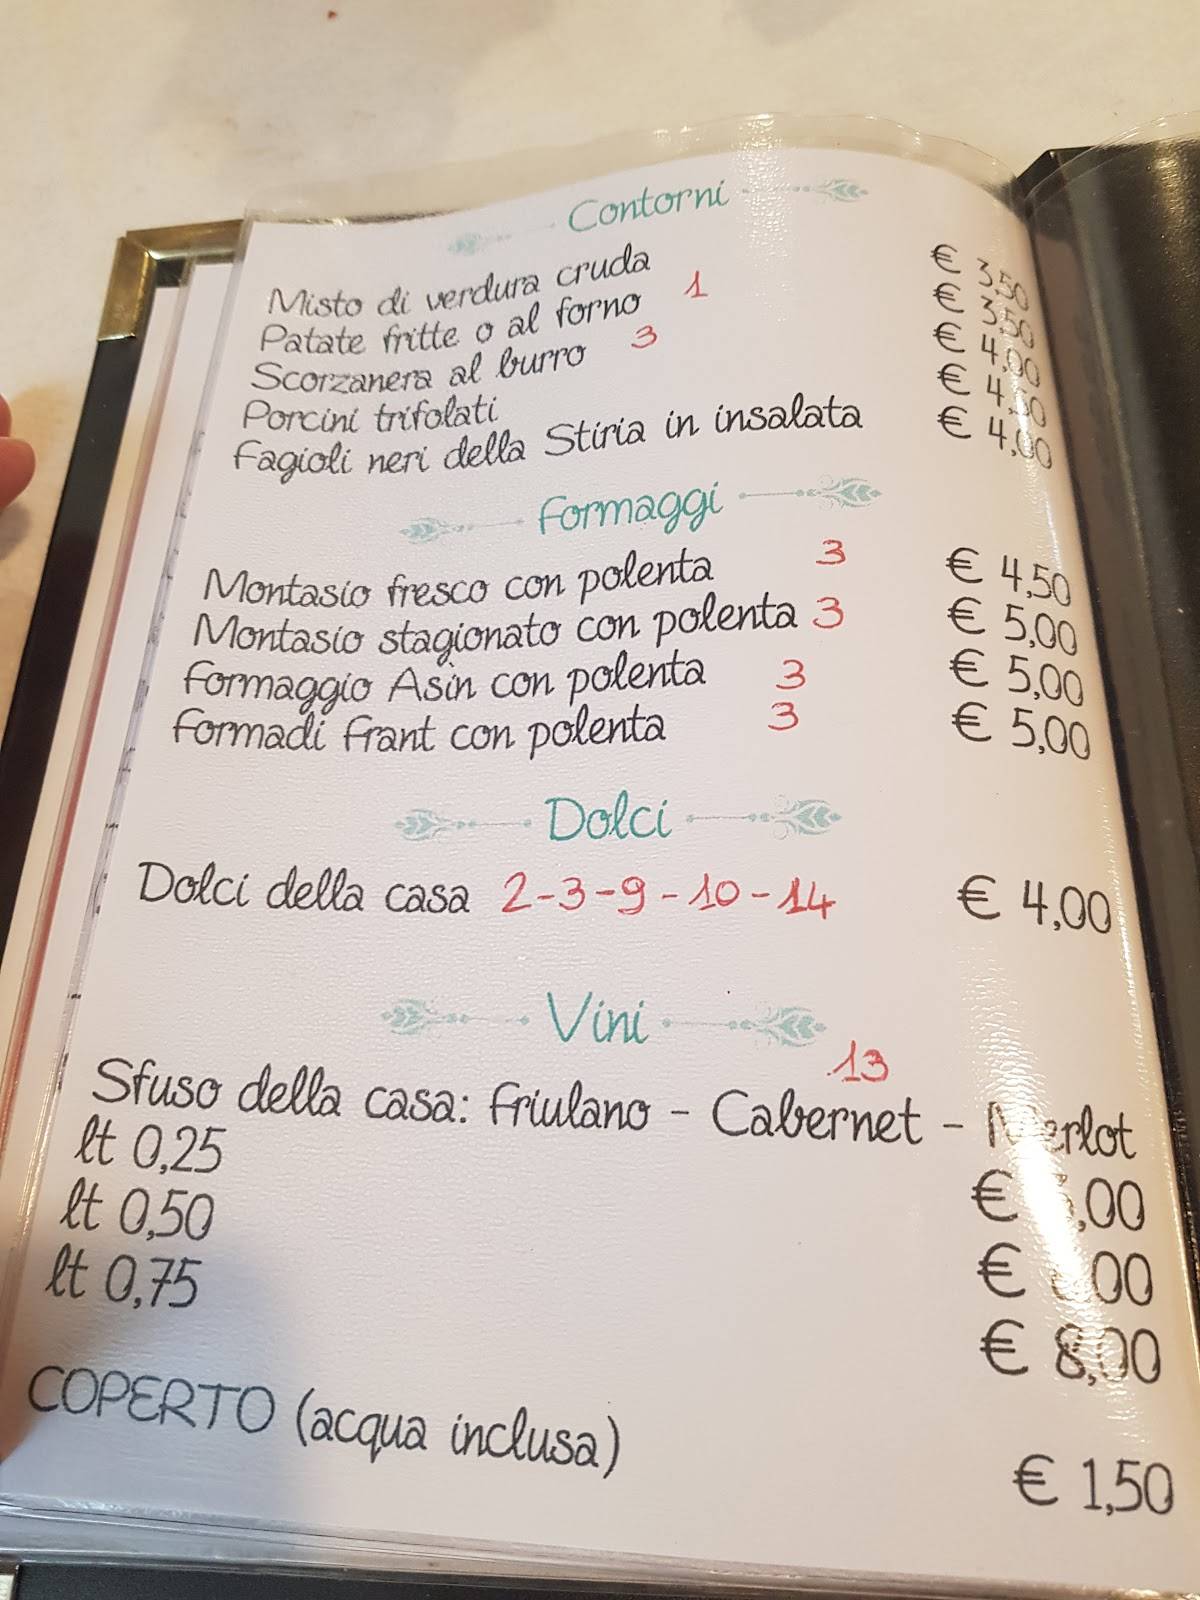 Contorni
Misto di verdura cruda € 3,50
Patate fritte o al forno 1 € 3,50
Scorzanera al burro 3 € 4,00
Porcini trifolati € 4,50
Fagioli neri della Stiria in insalata € 4,00
Formaggi
Montasio fresco con polenta 3 € 4,50
Montasio stagionato con polenta 3 € 5,00
Formaggio Asìn con polenta 3 € 5,00
Formadi Frant con polenta 3 € 5,00
Dolci
Dolci della casa 2-3-9-10-14 € 4,00
Vini
13
Sfuso della casa: Friulano - Cabernet - Merlot
lt 0,25 €
lt 0,50 €
lt 0,75 € 8,00
COPERTO (acqua inclusa) € 1,50